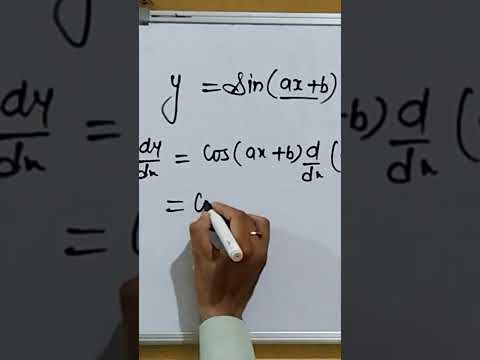 y = Sin(ax+b)
dy/dx = Cos(ax+b) d/dx (
= C